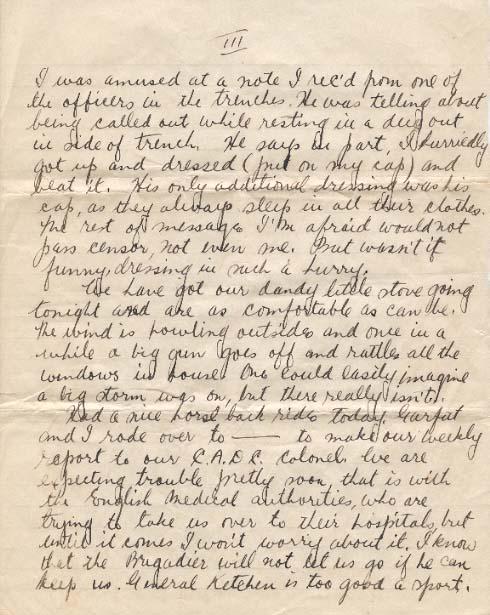 III
I was amused at a note I rec'd from one of
the officers in the trenches. He was telling about
being called out while resting in a dug out
in side of trench. He says in part, I hurriedly
got up and dressed (put on my cap) and
beat it. His only additional dressing was his
cap, as they always sleep in all their clothes.
The rest of message I'm afraid would not
pass censor, not even me. But wasn't it
funny, dressing in such a hurry.
We have got our dandy little stove going
tonight and are as comfortable as can be.
The wind is howling outside and once in a
while a big gun goes off and rattles all the
windows in house. One could easily imagine
a big storm was on, but there really isn't.
Had a nice horse back ride today.
and I rode over to —— to make our weekly
report to our C.A.D.C. colonel. We are
expecting trouble pretty soon, that is with
the English Medical authorities, who are
trying to take us over to their hospitals, but
until it comes I won't worry about it. I know
that the Brigadier will not let us go if he can
keep us. General Ketchen is too good a sport.